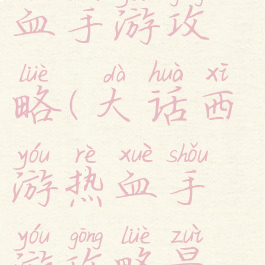 血手游攻
lüè dà huà xī
略(大话西
yóu rè xuè shǒu
游热血手
yóu gōng lüè zuì
游攻略最